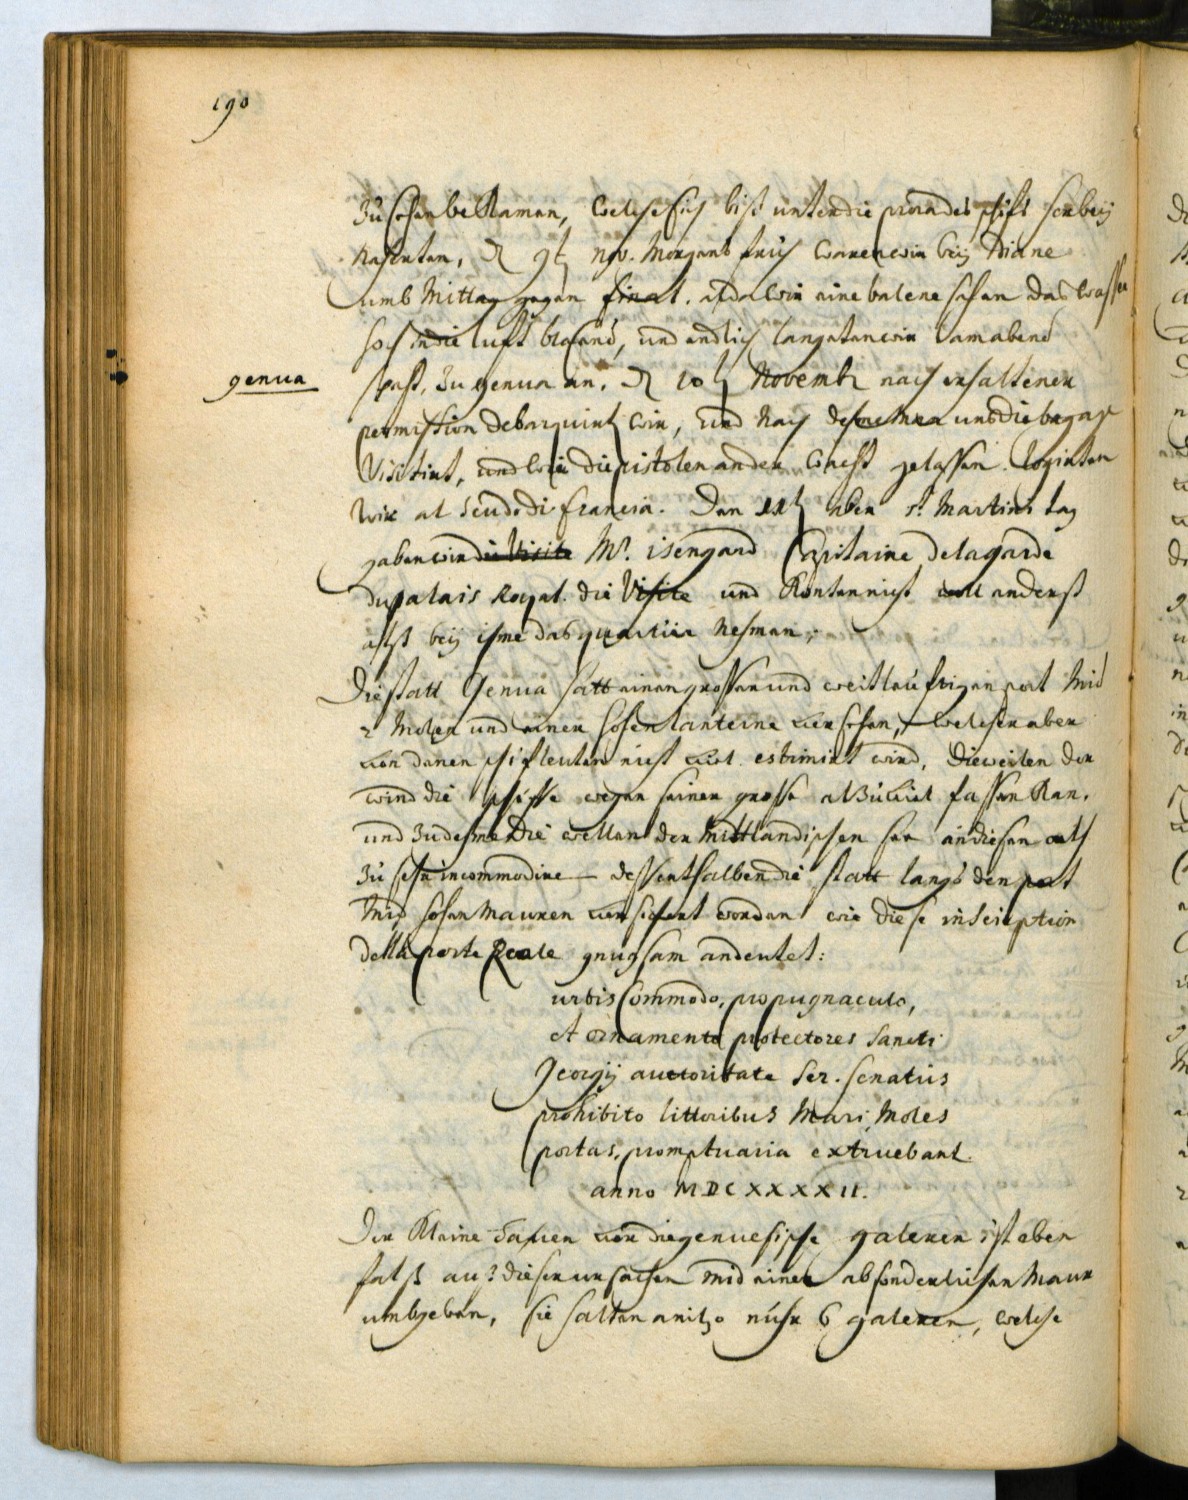 190
zu sehen bekamen, welche sich bist unter die prora des schifs herbeÿ
naherten, d 9t. nov. Morgens früh waren wir beÿ Diane
umb Mittag gegen final. alda wir eine balene sahen das wasser
hoch in die luft blasend, und endlich langeten wir am abend
genua
spaht, zu genua an. d 10t Novembr nach erhaltener
permission debarquirt wir, und nach deme man uns die bagage
Visitirt, und wir die pistolen an der wacht gelassen. logirten
wir al scudo di francia. Den 11t aber St Martins tag
gaben wir die Visite Mr. isengard Capitaine de la garde
du palais Royal. die Visite und konten nicht anderst
alss beÿ ihme das quartier nehmen;
Die statt Genua hatt einen grossen und weitlaüfigen port mid
2 Molen und einer hohen lanterne versehen, welcher aber
von denen schifleuten nicht viel estimirt wird, dieweilen der
wind die schiffe wegen seiner grösse alzuviel fassen kan.
und zudeme die wellen der Mittlandischen see an diesen orth
zu sehr incommodire dessenthalben die statt langs den port
mid hohen Mauren versichert worden wie diese inscription
della porte Reale gnugsam andeutet:
urbis Commodo, propugnaculo,
et ornamento protectores Sancti
Georgÿ auctoritate Ser. Senatus
prohibito littoribus Mari, Moles
portas, promptuaria extruebant.
anno MDCXXXXII.
Der kleine hafen von die genuesische galeren ist eben
fals aus dieser ursachen mid einer absonderlichen Maur
umbgeben, sie halten anitzo nuhr 6 galeren, welche